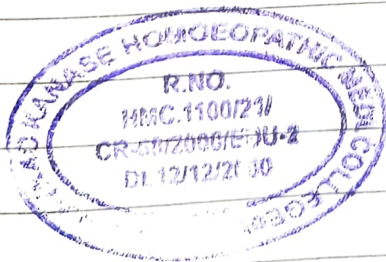 KANASE HOMOEOPATHIC MEDI COLLEGE
R.NO.
HMC.1100/21/
CR-50/2000/EDU-2
Dt.12/12/2000